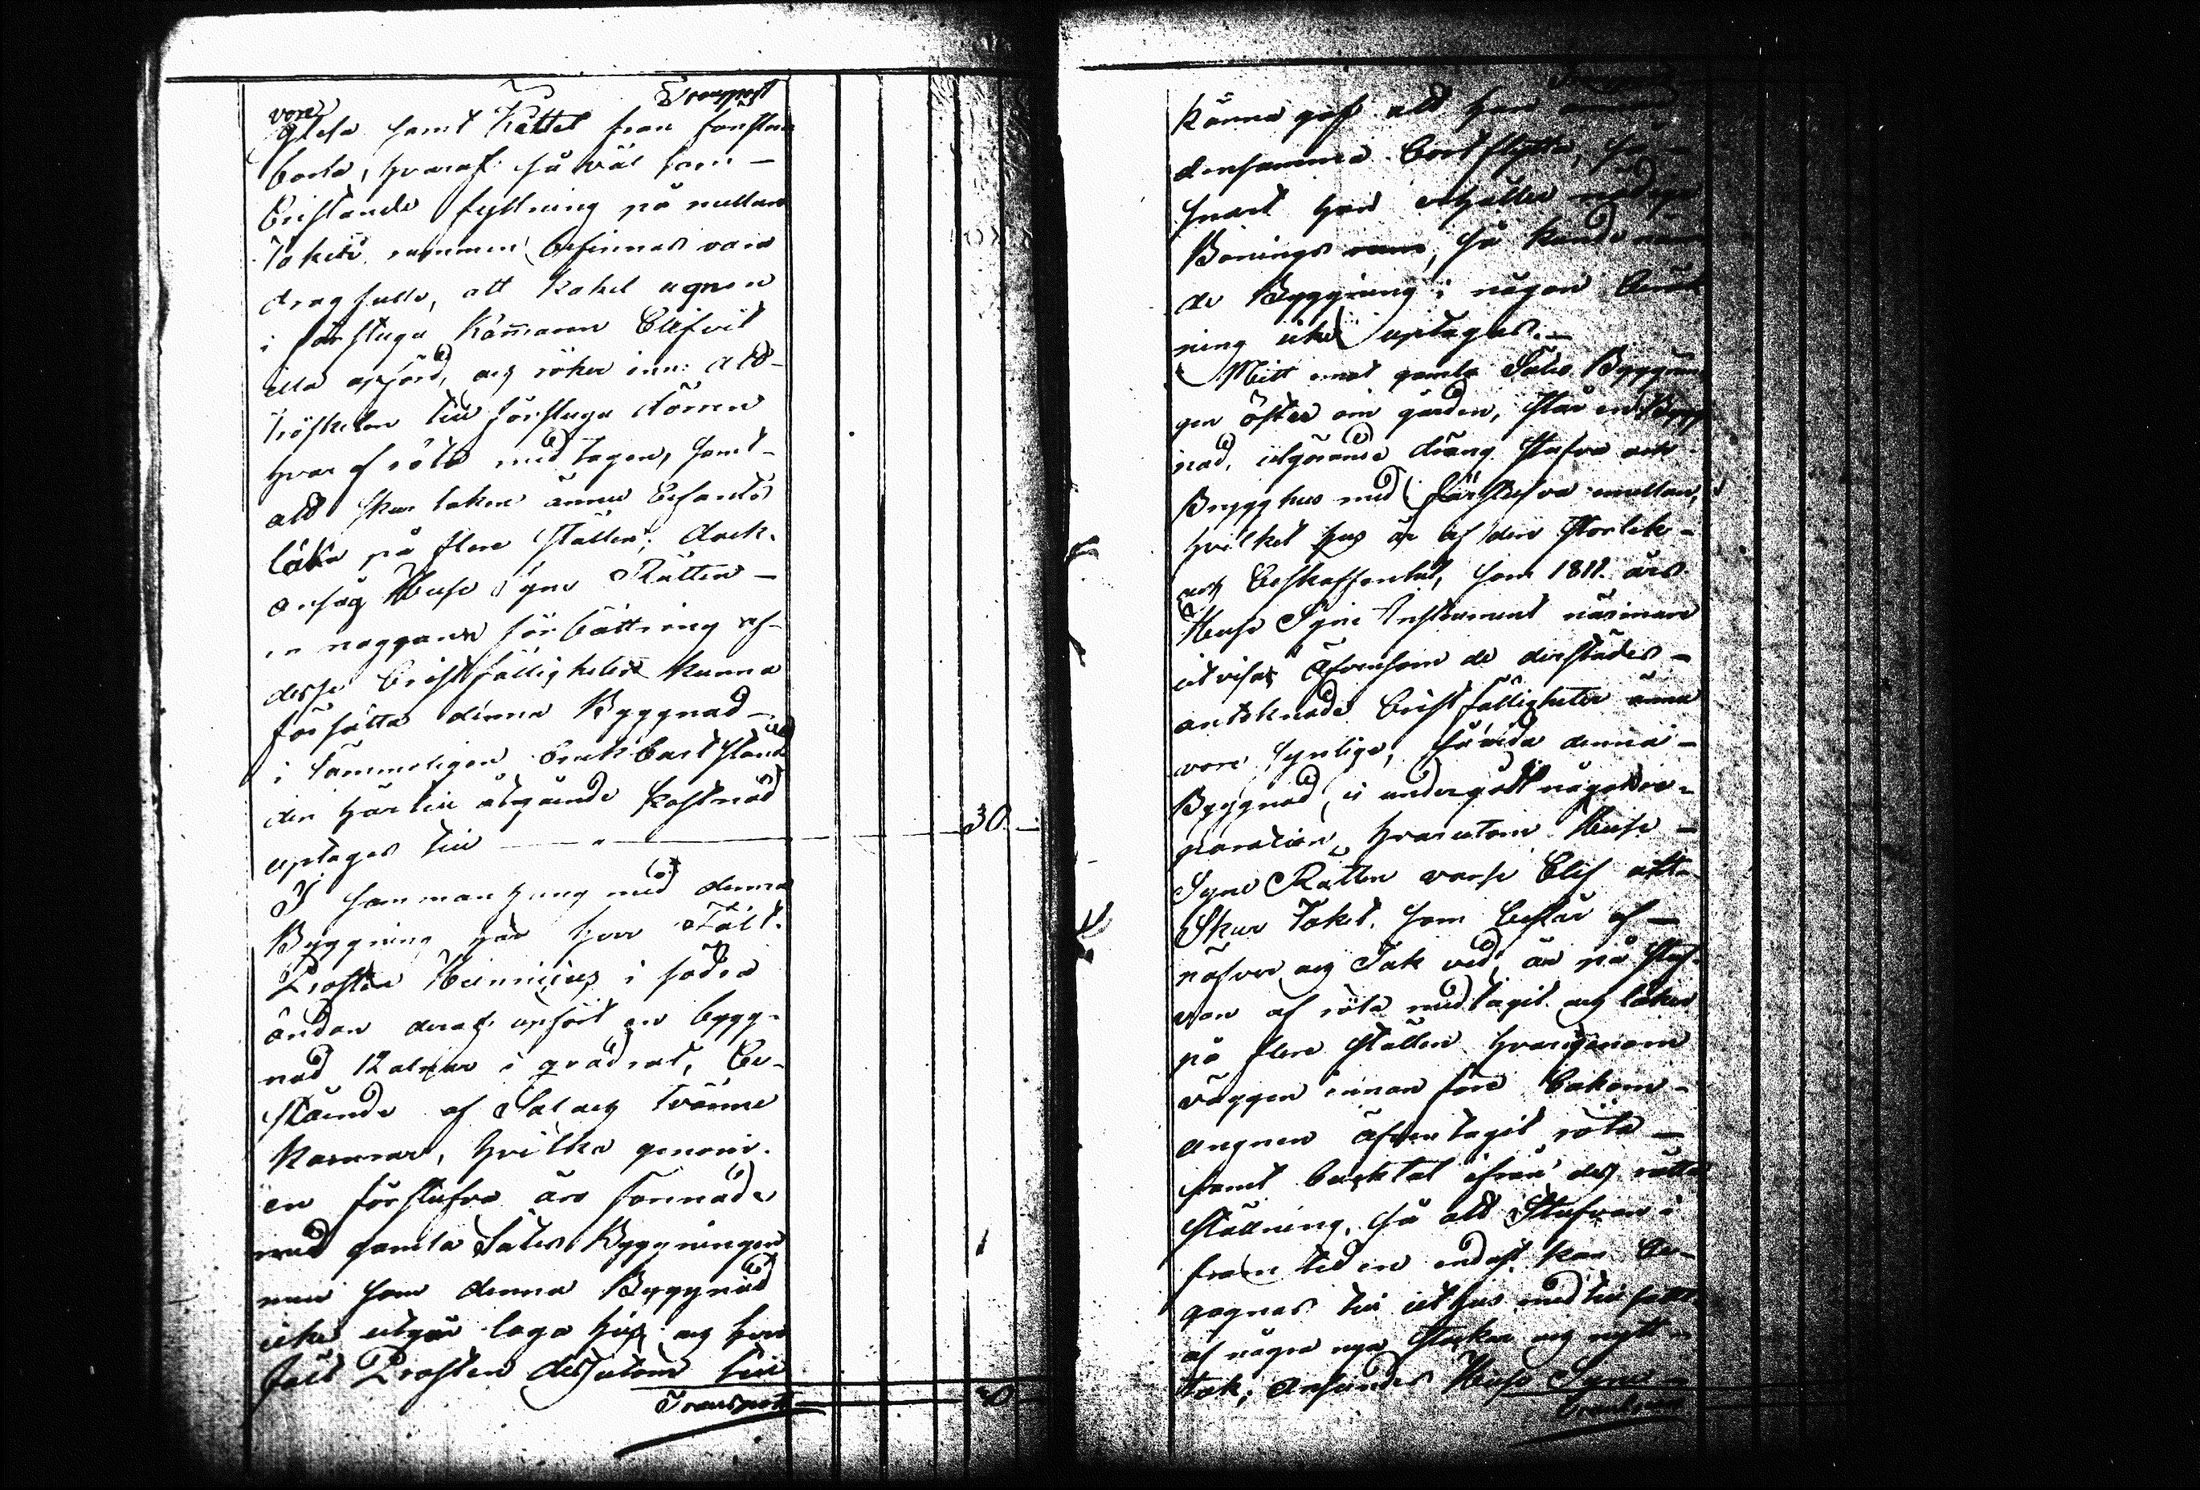 Transport
vore
glesa samt Kittet från fönstren
borta, hvaraf så väl som –
bristande fyllning på mellan
Taket rummen befinnas vara
dragfulle, att Kakel ugnen
i förstugu Kammaren blifvit
illa opförd, och röker inn: att
tröskelen till förstugu dörren
hvar af röta medtagen, samt –
att skur taken ännu befants
läka på flere ställen; dock.
ansåg Huse Syne Rätten –
en noggann förbättring af
desse bristfälligheter kunna
försätta denna Byggnad –
i tämmeligen brukbart stånd
den härtill åtgående kostnad
uptages till — " — 30. —
I sammanhang med denna
Byggning har herr Fält.
Prosten Heinricius i södra
ändan deraf upfört en bygg-
nad 12 alnar i quadrat, be-
stående af Sal och tvänne
Kamrar, hvilka genom.
en förstufva äro förenade
med gamla Sätes Byggningen
men som denna Byggnad
icke utgör laga hus och herr
Fält Prosten dessutom till
Transport 30
Transport
Känna gaf att han
densamma bortflytta, så –
snart han erhåller
Bonings rum, så kunde
de Byggning i någon
ning icke uptagas. –
Mitt emot gamla Sätes Byggnin
gen öster om gården, står en Bygg
nad, utgörande dräng stufva och
Brygghus med förstufva emellan,
hvilket hus är af den storlek –
och beskaffenhet, som 1811. års
Huse Syne Instrument närmare
utvisar äfvensom de derstädes –
anteknade bristfälligheter ännu
vore synlige, såvida denna –
Byggnad ei undergått någon re-
paration, hvarutom Huse –
Syne Rätten varse blef att
Skur Taket, som består af –
näfver och Tak ved, är på stuf-
van af röta medtagit och läker
på flere ställen hvarigenom
väggen innan före bakom –
ungnen äfven tagit röta –
samt bucktat ifrån dess rätta
ställning, så att Stufvan i
framtiden endast kan be-
gagnas till uthus med tillsatts
af några nya stockar och nytt –
tak; ansandes Huse Syne –
Transport